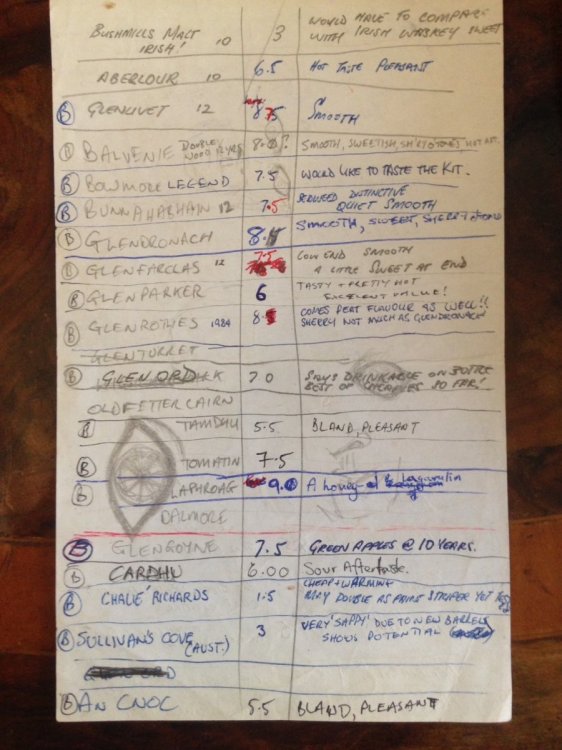 BUSHMILLS MALT IRISH! 10 3 WOULD HAVE TO COMPARE
WITH IRISH WHISKEY SWEET
ABERLOUR 10 6.5 HOT TASTE PLEASANT
B GLENLIVET 12 8.75 SMOOTH
B BALVENIE DOUBLE WOOD 12 YRS 8.0? SMOOTH, SWEETISH,
B BOWMORE LEGEND 7.5 WOULD LIKE TO TASTE THE KIT.
B BUNNAHABHAIN 12 7.5 SEAWEED DISTINCTIVE
QUIET SMOOTH
B GLENDRONACH 8. SMOOTH, SWEET, SHERRY
B GLENFARCLAS 12 7.5 LOW END SMOOTH
A LITTLE SWEET AT END
B GLENPARKER 6 TASTY + PRETTY HOT
EXCELLENT VALUE!
B GLENROTHES 1984 8.5 COMES PEAT FLAVOUR AS WELL!!
SHERRY NOT MUCH AS GLENDRONACH
GLENTURRET
B GLEN ORD 7.0 SAYS DRINKABLE ON BOTTLE
BEST OF CHEAPIES SO FAR!
OLD FETTERCAIRN
B TAMDHU 5.5 BLAND, PLEASANT
B TOMATIN 7.5
B LAPHROAG 9.0 A honey of a Lagavulin
DALMORE
B GLENGOYNE 7.5 GREEN APPLES @ 10 YEARS.
B CARDHU 6.00 Sour Aftertaste.
B CHALIE RICHARDS 1.5 CHEAP + WARMING
MAY DOUBLE AS PAINT STRIPER YET
B SULLIVAN'S COVE (AUST.) 3 VERY 'SAPPY' DUE TO NEW BARRELS
SHOWS POTENTIAL
B AN CNOC 5.5 BLAND, PLEASANT